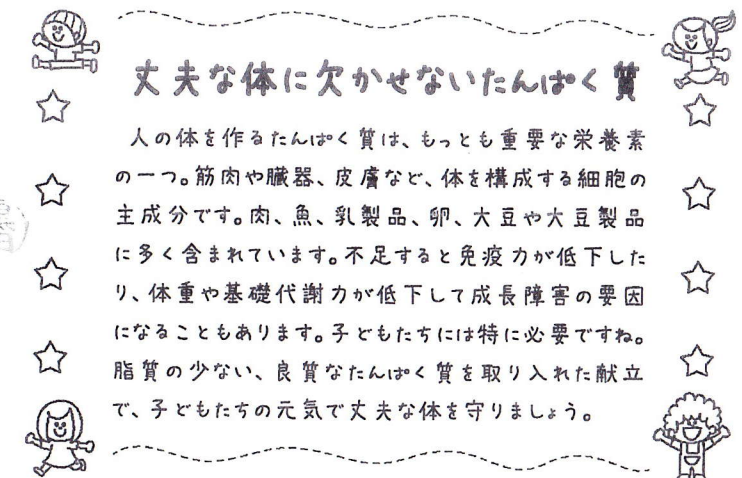 丈夫な体に欠かせないたんぱく質
人の体を作るたんぱく質は、もっとも重要な栄養素
の一つ。筋肉や臓器、皮膚など、体を構成する細胞の
主成分です。肉、魚、乳製品、卵、大豆や大豆製品
に多く含まれています。不足すると免疫力が低下した
り、体重や基礎代謝力が低下して成長障害の要因
になることもあります。子どもたちには特に必要ですね。
脂質の少ない、良質なたんぱく質を取り入れた献立
で、子どもたちの元気で丈夫な体を守りましょう。